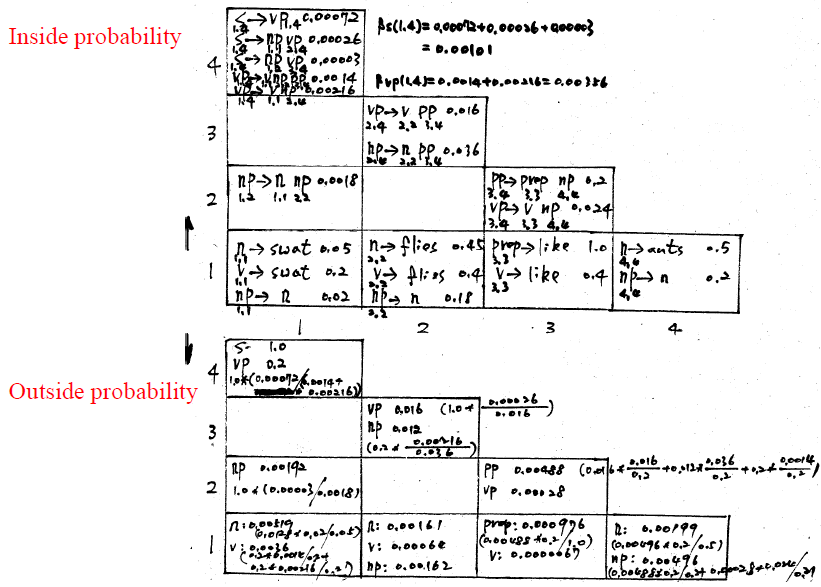 Inside probability
S→VP 0.00072
1.4 1.4
S→np vp 0.00026
1.4 1.1 2.4
S→np vp 0.00003
1.4 1.2 3.4
VP→V np pp 0.0014
VP→V np 0.00216
1.4 1.1 2.4
βs(1.4)=0.00072+0.00026+0.00003
= 0.00101
βvp(1.4)=0.0014+0.00216=0.00356
4
VP→V PP 0.016
2.4 2.2 3.4
np→n pp 0.036
2.4 2.2 3.4
3
np→n np 0.0018
1.2 1.1 2.2
PP→prop np 0.2
3.4 3.3 4.4
VP→V np 0.024
3.4 3.3 4.4
2
n→swat 0.05
1.1
V→swat 0.2
1.1
np→n 0.02
1.1
n→flies 0.45
2.2
V→flies 0.4
2.2
np→n 0.18
2.2
prop→like 1.0
3.3
V→like 0.4
3.3
n→ants 0.5
4.4
np→n 0.2
4.4
1
1 2 3 4
Outside probability
S 1.0
VP 0.2
1.0*(0.00072/(0.0014+
0.00216))
4
VP 0.016 (1.0* 0.00026/0.016)
np 0.012
(0.2* 0.00216/0.036)
3
np 0.00192
1.0*(0.00003/0.0018)
PP 0.00488 (0.016*0.016/0.2+0.012*0.036/0.2+0.2*0.0014/0.2)
VP 0.00028
2
n: 0.00519
(0.0128*0.02/0.05)
V: 0.0036
(0.2*0.0014/0.2+
0.2*0.00216/0.2)
n: 0.00161
V: 0.00064
np: 0.00162
prop: 0.000976
(0.00488*0.2/1.0)
V: 0.0000067
n: 0.00199
(0.00496*0.2/0.5)
np: 0.00496
(0.00488*0.2/0.2+0.00028*0.024/0.2)
1